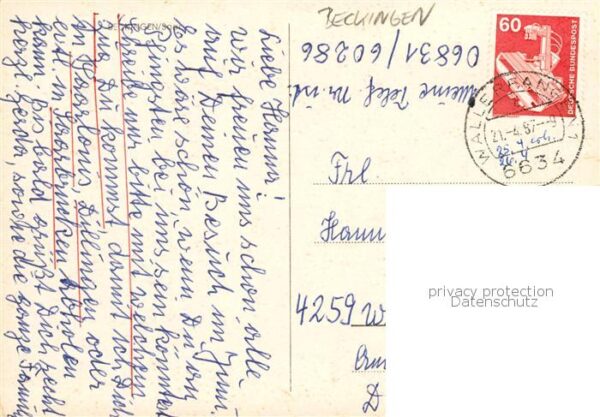 BECKINGEN
Liebe Hanna!
wir freuen uns schon alle
auf Deinen Besuch im Juni,
es wäre schön, wenn Du an
Pfingsten bei uns sein könntest
schreib uns bitte mit welchem
Zug Du kommst damit ich Dich
in Saarlouis, Dillingen oder
evtl. in Saarbrücken abholen
kann. Bis dahin grüßt Dich recht
herzl. Gerda, sowie die ganze Familie
meine Telef. Nr. ist:
06831/60286
60
DEUTSCHE BUNDESPOST
WALLERFANGEN
21.-4.87
6634
Frl.
Hann
4259 W
D
privacy protection
Datenschutz